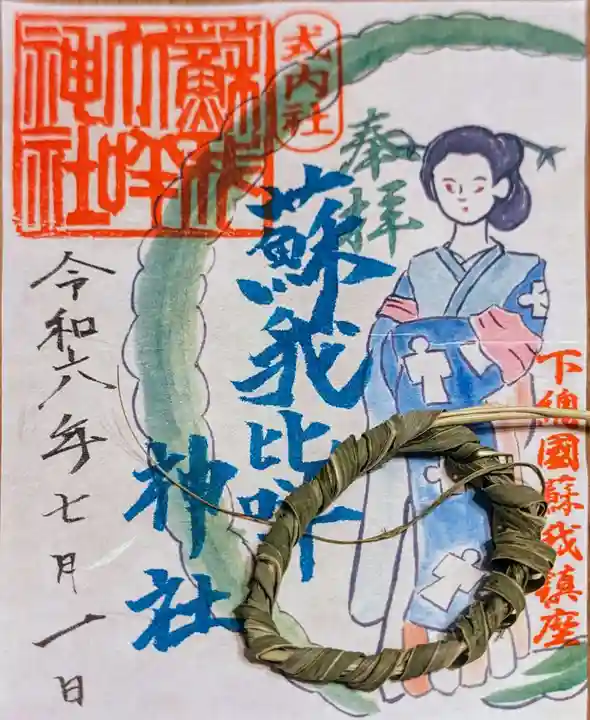 奉拝
式内社
下總國蘇我鎮座
蘇我比咩
神社
蘇我
比咩
神社
令和六年七月一日